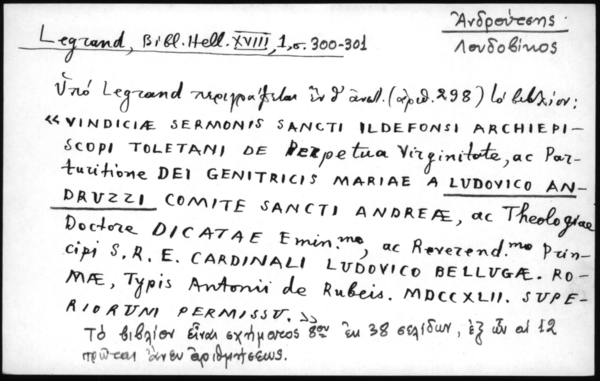 Ἀνδρούτσης
Λουδοβίκος
Legrand, Bibl. Hell. XVIII, 1, σ. 300-301
Ὑπό Legrand περιγράφεται ἐν θ' ἀνωτ. (ἀριθ. 298) τὸ βιβλίον:
« VINDICIÆ SERMONIS SANCTI ILDEFONSI ARCHIEPI-
SCOPI TOLETANI DE Perpetua Virginitate, ac Par-
turitione DEI GENITRICIS MARIAE A LUDOVICO AN-
DRUZZI COMITE SANCTI ANDREÆ, ac Theologiae
Doctore DICATAE Emin.mo, ac Reverend.mo Prin-
cipi S. R. E. CARDINALI LUDOVICO BELLUGÆ. RO-
MÆ, Typis Antonii de Rubeis. MDCCXLII. SUPE-
RIORUM PERMISSU. »
Τὸ βιβλίον εἶναι σχήματος 8ου ἐκ 38 σελίδων, ἐξ ὧν αἱ 12
πρῶται ἄνευ ἀριθμήσεως.